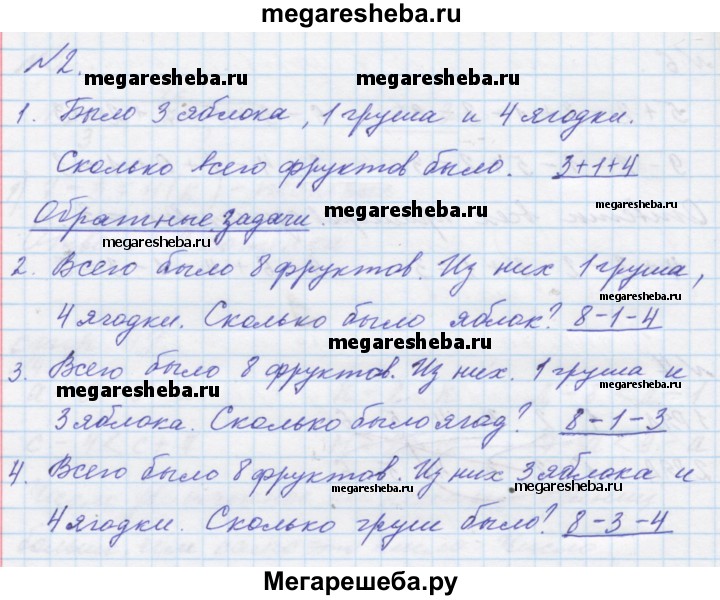 megaresheba.ru
№2.
megaresheba.ru megaresheba.ru
1. Было 3 яблока, 1 груша и 4 ягодки.
Сколько всего фруктов было. 3+1+4
Обратные задачи. megaresheba.ru
megaresheba.ru
2. Всего было 8 фруктов. Из них 1 груша,
megaresheba.ru
4 ягодки. Сколько было яблок? 8-1-4
3. Всего было 8 фруктов. Из них. 1 груша и
megaresheba.ru megaresheba.ru
3 яблока. Сколько было ягад? 8-1-3
4. Всего было 8 фруктов. Из них 3 яблока и
megaresheba.ru megaresheba.ru
4 ягодки. Сколько груш было? 8-3-4
Мегарешеба.ру